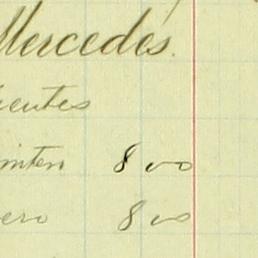 Mercedes.
ientes
inten 8 00
ero 8 00